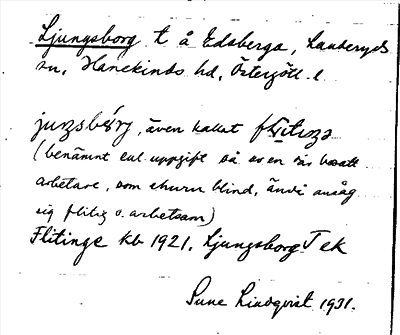 Ljungsborg t å Edsberga, Landeryds
sn, Hanekinds hd, Östergötl. l.
juŋsbórj, även kallat flitiŋə
(benämnt enl. uppgift så av en där bosatt
arbetare, som ehuru blind, ändå ansåg
sig flitig o. arbetsam)
Flitinge kb 1921, Ljungsborg T ek
Sune Lindqvist 1931.